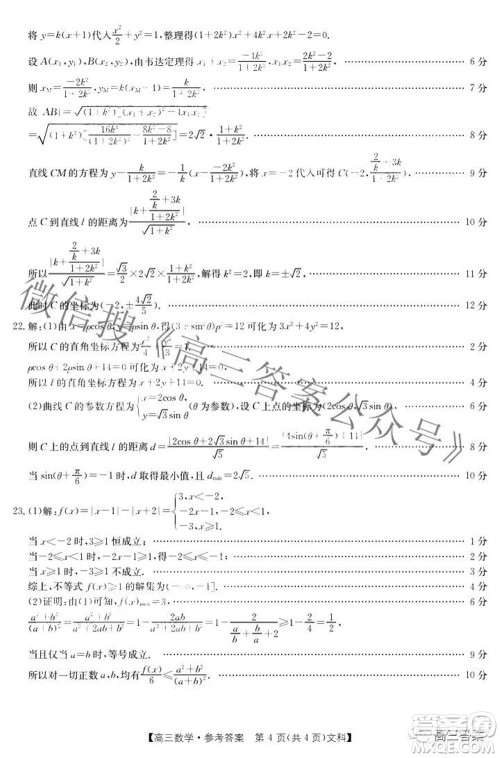 将 y=k(x+1)代入x²/2+y²=1,整理得(1+2k²)x²+4k²x+2k²-2=0.
设 A(x₁,y₁),B(x₂,y₂),由韦达定理得 x₁+x₂=-4k²/(1+2k²),x₁x₂=(2k²-2)/(1+2k²). 6 分
则 x_M=-2k²/(1+2k²),y_M=k(x_M+1)=k/(1+2k²). 7 分
故|AB|=√((1+k²)[(x₁+x₂)²-4x₁x₂])
=√((1+k²)[16k⁴/(1+2k²)²-(8k²-8)/(1+2k²)])=2√2·(1+k²)/(1+2k²). 8 分
直线 CM 的方程为 y-k/(1+2k²)=-1/k(x+2k²/(1+2k²)),将 x=-2 代入可得 C(-2,(2/k+3k)/(1+2k²)). 9 分
点 C 到直线 l 的距离为|k+(2/k+3k)/(1+2k²)|/√(1+k²). 10 分
所以|k+(2/k+3k)/(1+2k²)|/√(1+k²)=√3/2×2√2×(1+k²)/(1+2k²),解得 k=±√2. 11 分
此时 C 的坐标为(-2,±4√2/5). 12 分
22.解:(1)由 x=ρcos θ,y=ρsin θ,得 可化为 3x²+4y²=12. 2 分
所以 C 的直角坐标方程为x²/4+y²/3=1. 3 分
ρcos θ+2ρsin θ+14=0 可化为 x+2y+14=0.
所以 l 的直角坐标方程为 x+2y+14=0. 4 分
(2)曲线 C 的参数方程为{x=2cos θ, y=√3sin θ (θ 为参数),设 C 上点的坐标为(2cos θ,√3sin θ). 6 分
则 C 上的点到直线 l 的距离 d=|2cos θ+2√3sin θ+14|/√5=|4sin(θ+π/6)+14|/√5. 8 分
当 sin(θ+π/6)=-1 时,d 取得最小值,且 d_min=2√5. 10 分
23.(1)解:f(x)=|x-1|-|x+2|={3,x<-2, -2x-1,-2≤x<1, -3,x≥1.
当 x<-2 时,3≥1 恒成立; 1 分
当-2≤x<1 时,-2x-1≥1,解得-2≤x≤-1; 2 分
当 x≥1 时,-3≥1 不成立. 3 分
综上,不等式 f(x)≥1 的解集为(-∞,-1]. 4 分
(2)证明:由(1)可知,f(x)_max=3. 6 分
(a²+b²)/(a+b)²=(a²+b²)/(a²+2ab+b²)=1-2ab/(a²+2ab+b²)=1-2/(a/b+b/a+2)≥1-2/4=1/2.
当且仅当 a=b 时,等号成立. 9 分
所以对一切正数 a,b,均有f(x)/6≤(a²+b²)/(a+b)²成立. 10 分
【高三数学·参考答案 第 4 页(共 4 页)文科】
微信搜《高三答案公众号》
高三答案